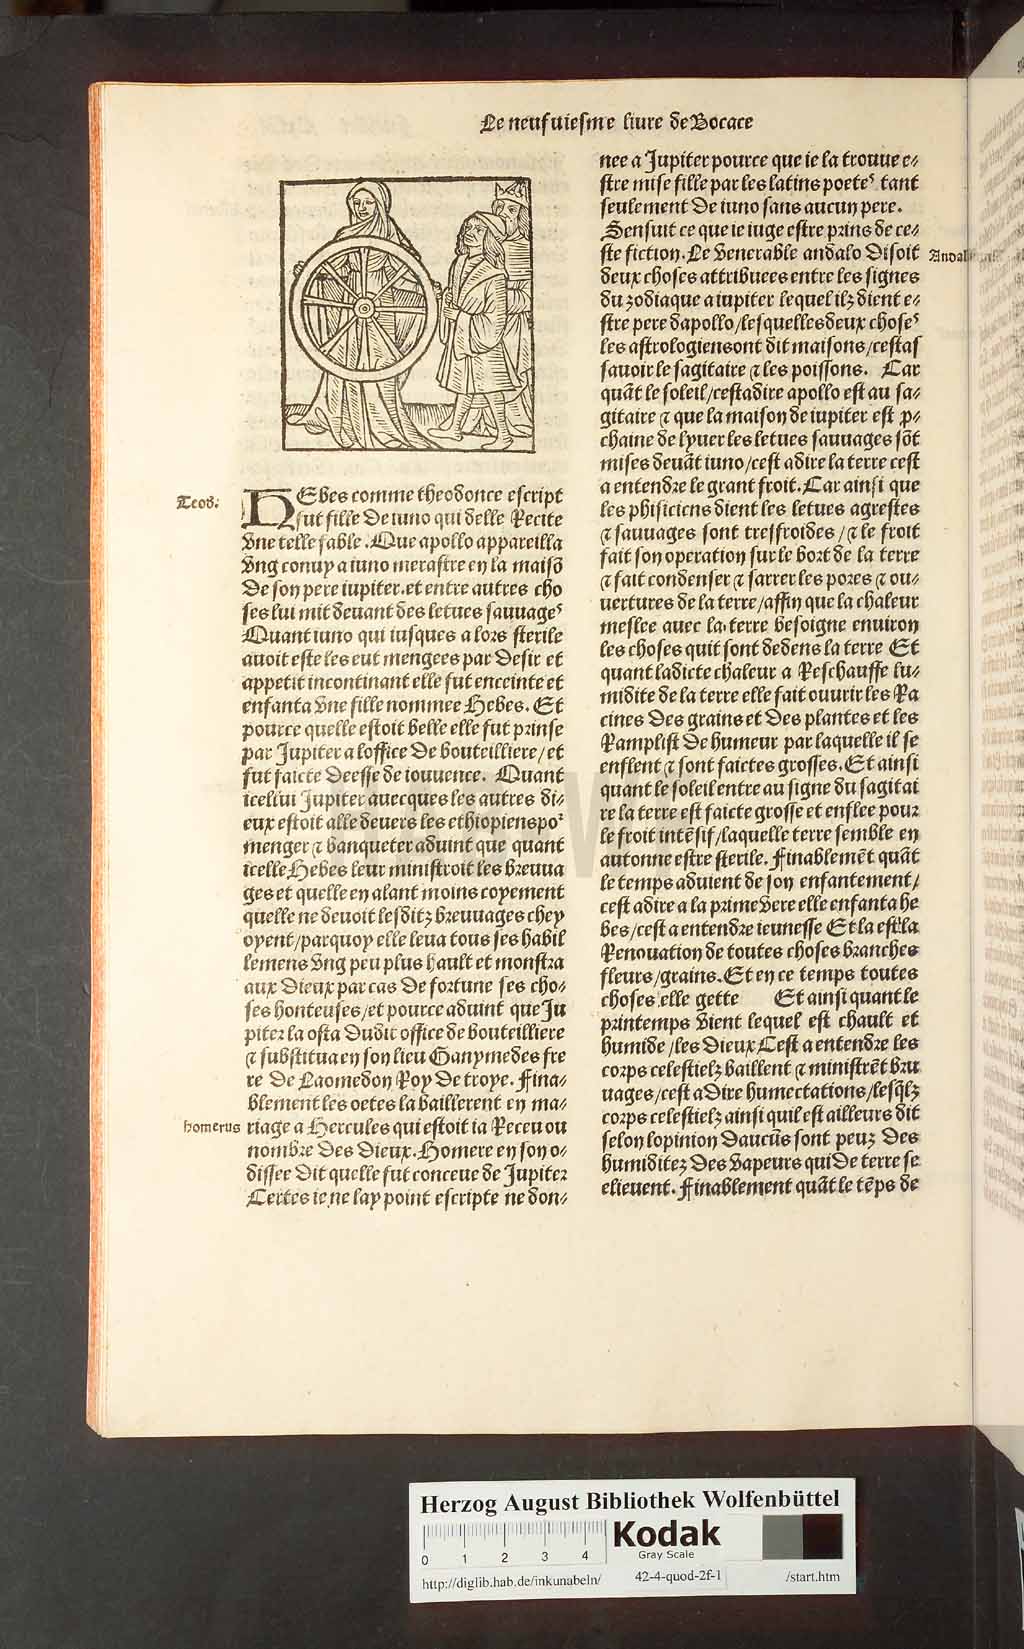 Le neufuiesme liure de Bocace
Teod:
HEbes comme theodonce escript
fut fille de iuno qui delle Recite
vne telle fable. Que apollo appareilla
vng conuy a iuno merastre en la maisō
de son pere iupiter. et entre autres cho
ses lui mit deuant des letues sauuages
Quant iuno qui iusques a lors sterile
auoit este les eut mengees par desir et
appetit incontinant elle fut enceinte et
enfanta vne fille nommee Hebes. Et
pource quelle estoit belle elle fut prinse
par Jupiter a loffice de bouteilliere/et
fut faicte deesse de iouuence. Quant
icellui Jupiter auecques les autres di-
eux estoit alle deuers les ethiopiens por
menger ⁊ banqueter aduint que quant
icelle Hebes leur ministroit les breuua
ges et quelle en alant moins coyement
quelle ne deuoit lesditz breuuages chey
oyent/parquoy elle leua tous ses habil
lemens vng peu plus hault et monstra
aux dieux par cas de fortune ses cho-
ses honteuses/et pource aduint que Ju
piter la osta dudit office de bouteilliere
⁊ substitua en son lieu Ganymedes fre
re de Laomedon Roy de troye. Fina-
blement les oetes la baillerent en ma-
homerus
riage a Hercules qui estoit ia Receu ou
nombre des dieux. Homere en son o-
dissee dit quelle fut conceue de Jupiter
Certes ie ne lay point escripte ne don-
nee a Jupiter pource que ie la trouue e-
stre mise fille par les latins poetes tant
seulement de iuno sans aucun pere.
Sensuit ce que ie iuge estre prins de ce-
ste fiction. Le venerable andalo disoit
deux choses attribuees entre les signes
du zodiaque a iupiter lequel ilz dient e-
stre pere dapollo/lesquelles deux choses
les astrologiens ont dit maisons/cestas
sauoir le sagitaire ⁊ les poissons. Car
quāt le soleil/cestadire apollo est au sa-
gitaire ⁊ que la maison de iupiter est ꝓ-
chaine de lyuer les letues sauuages sōt
mises deuāt iuno/cest adire la terre cest
a entendre le grant froit. Car ainsi que
les phisiciens dient les letues agrestes
⁊ sauuages sont tresfroides/⁊ le froit
fait son operation sur le bort de la terre
⁊ fait condenser ⁊ sarrer les pores ⁊ ou-
uertures de la terre/affin que la chaleur
meslee auec la terre besoigne enuiron
les choses quit sont dedens la terre Et
quant ladicte chaleur a Reschauffe lu-
midite de la terre elle fait ouurir les Ra
cines des grains et des plantes et les
Ramplist de humeur par laquelle il se
enflent ⁊ sont faictes grosses. Et ainsi
quant le soleil entre au signe du sagitai
re la terre est faicte grosse et enflee pour
le froit intēsif/laquelle terre semble en
autonne estre sterile. Finablemēt quāt
le temps aduient de son enfantement/
cest adire a la prime vere elle enfanta he
bes/cest a entendre ieunesse Et la est la
Renouation de toutes choses branches
fleurs/grains. Et en ce temps toutes
choses elle gette Et ainsi quant le
printemps vient lequel est chault et
humide/les dieux Cest a entendre les
corps celestielz baillent ⁊ ministrēt bru
uages/cest a dire humectations/lesq̄lz
corps celestielz ainsi quil est ailleurs dit
selon lopinion daucūs sont peuz des
humiditez des vapeurs qui de terre se
elieuent. Finablement quāt le tēps de
Herzog August Bibliothek Wolfenbüttel
0 1 2 3 4
Kodak
Gray Scale
http://diglib.hab.de/inkunabeln/ 42-4-quod-2f-1 /start.htm